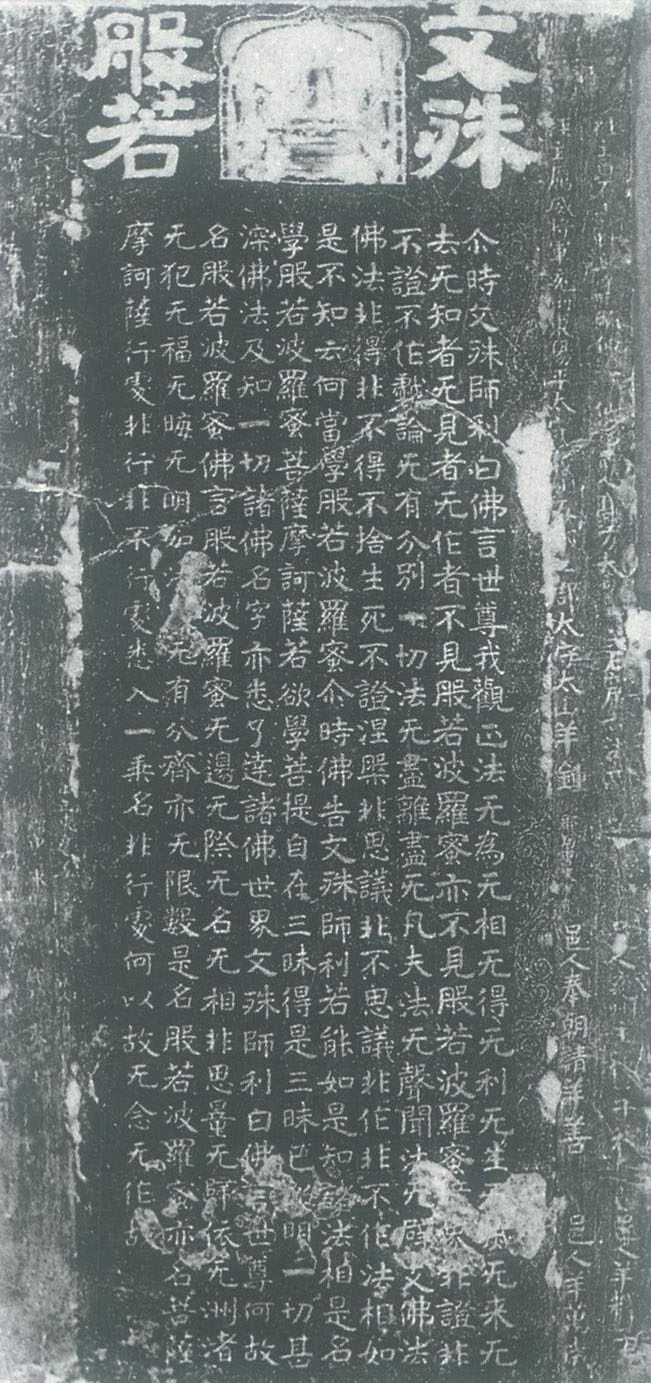 文殊
般若
尒時文殊師利白佛言世尊我觀正法无為无相无得无利无生无来无
去无知者无見者无作者不見般若波羅蜜亦不見般若波羅蜜非證非
不證不作戲論无有分別一切法无盡離盡无凡夫法无聲聞法无辟支佛法
佛法非得非不得不捨生死不證涅槃非思議非不思議非作非不作法相如
是不知云何當學般若波羅蜜尒時佛告文殊師利若能如是知諸法相是名
學般若波羅蜜菩薩摩訶薩若欲學菩提自在三昧得是三昧已照明一切甚
深佛法及知一切諸佛名字亦悉了達諸佛世界文殊師利白佛言世尊何故
名般若波羅蜜佛言般若波羅蜜无邊无際无名无相非思量无歸依无洲渚
无犯无福无晦无明如法无有分齊亦无限數是名般若波羅蜜亦名菩薩
摩訶薩行處非行非不行處悉入一乘名非行處何以故无念无作故
太山羊釗
邑人奉朝請羊善
邑人羊